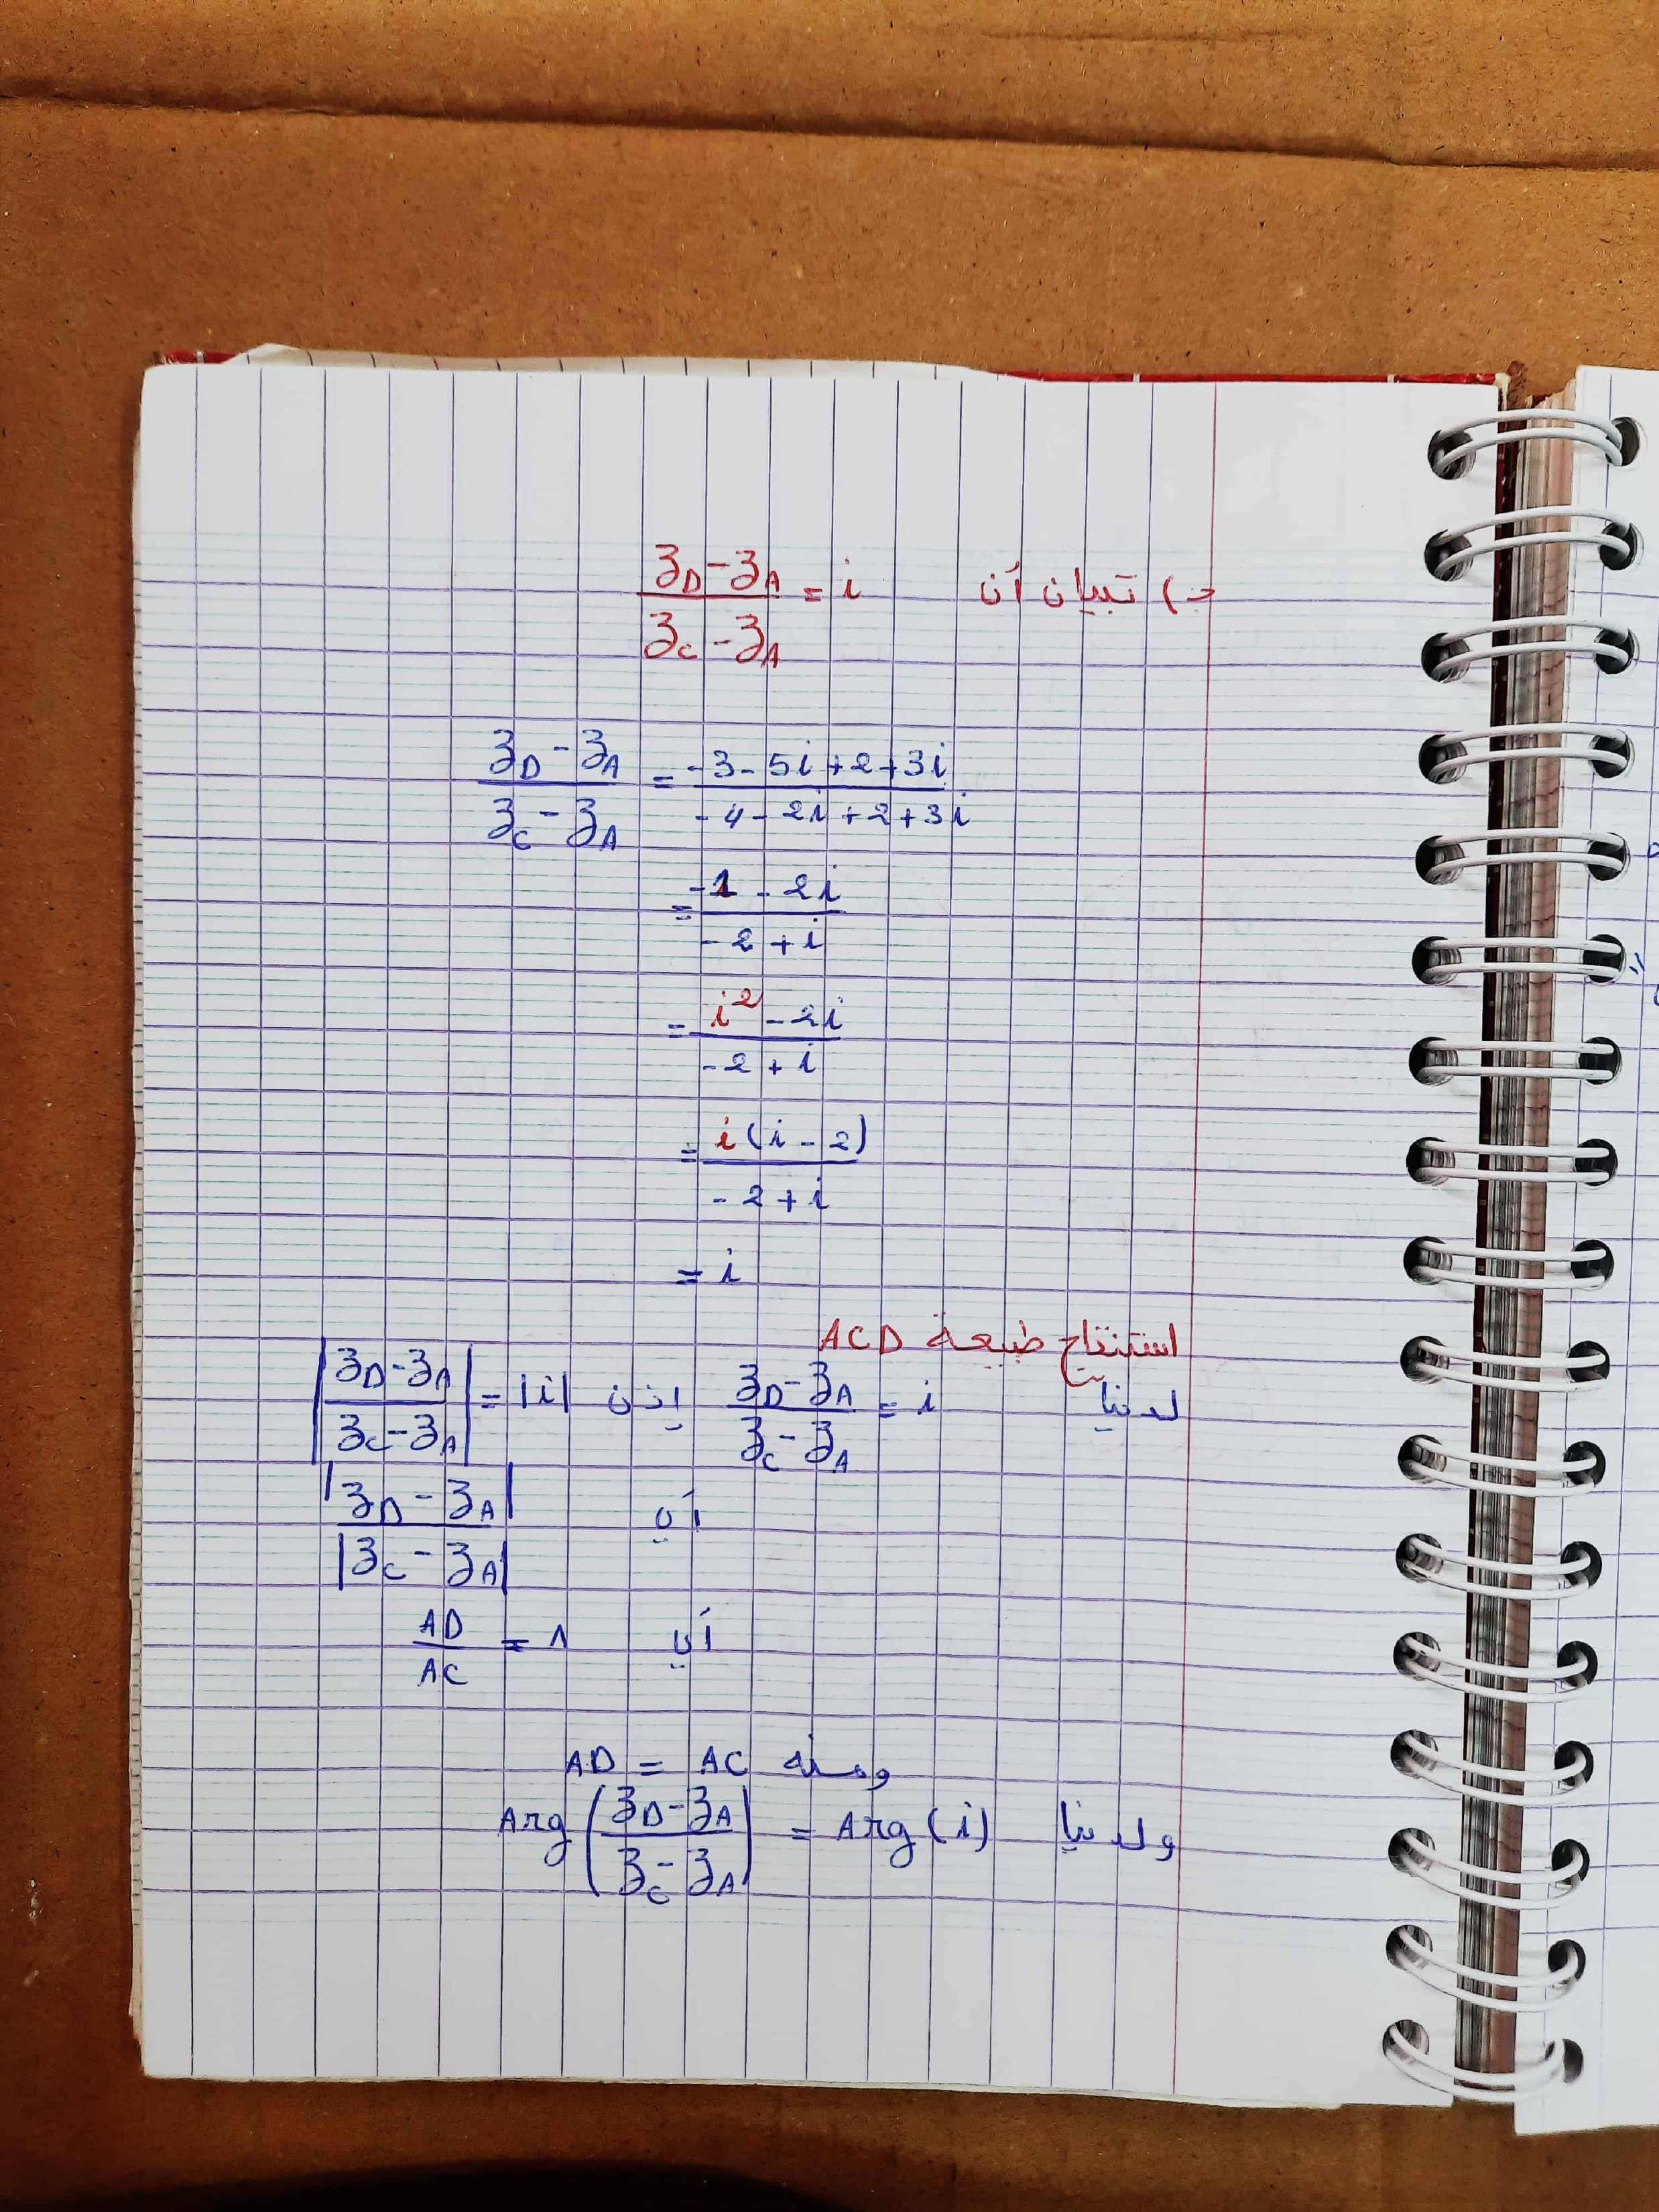 ج) تبيان أن (z_D - z_A)/(z_C - z_A) = i
(z_D - z_A)/(z_C - z_A) = (-3 - 5i + 2 + 3i)/(-4 - 2i + 2 + 3i)
= (-1 - 2i)/(-2 + i)
= (i² - 2i)/(-2 + i)
= i(i - 2)/(-2 + i)
= i
استنتاج طبيعة ACD
لدينا (z_D - z_A)/(z_C - z_A) = i إذن |(z_D - z_A)/(z_C - z_A)| = |i|
أي |z_D - z_A|/|z_C - z_A|
أي AD/AC = 1
ومنه AD = AC
ولدينا Arg((z_D - z_A)/(z_C - z_A)) = Arg(i)